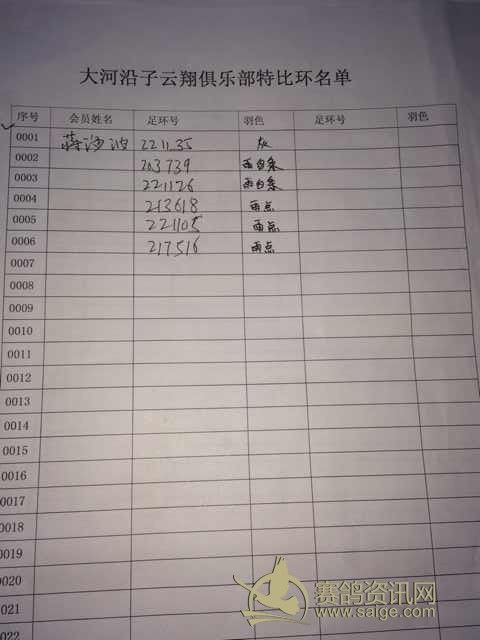 大河沿子云翔俱乐部特比环名单
序号 会员姓名 足环号 羽色 足环号 羽色
0001 蒋 221135 灰
0002 203739 雨白条
0003 221126 雨白条
0004 213618 雨点
0005 221105 雨点
0006 217516 雨点
0007
0008
0009
0010
0011
0012
0013
0014
0015
0016
0017
0018
0019
0020
0021
0022
赛鸽资讯网
www.saige.com